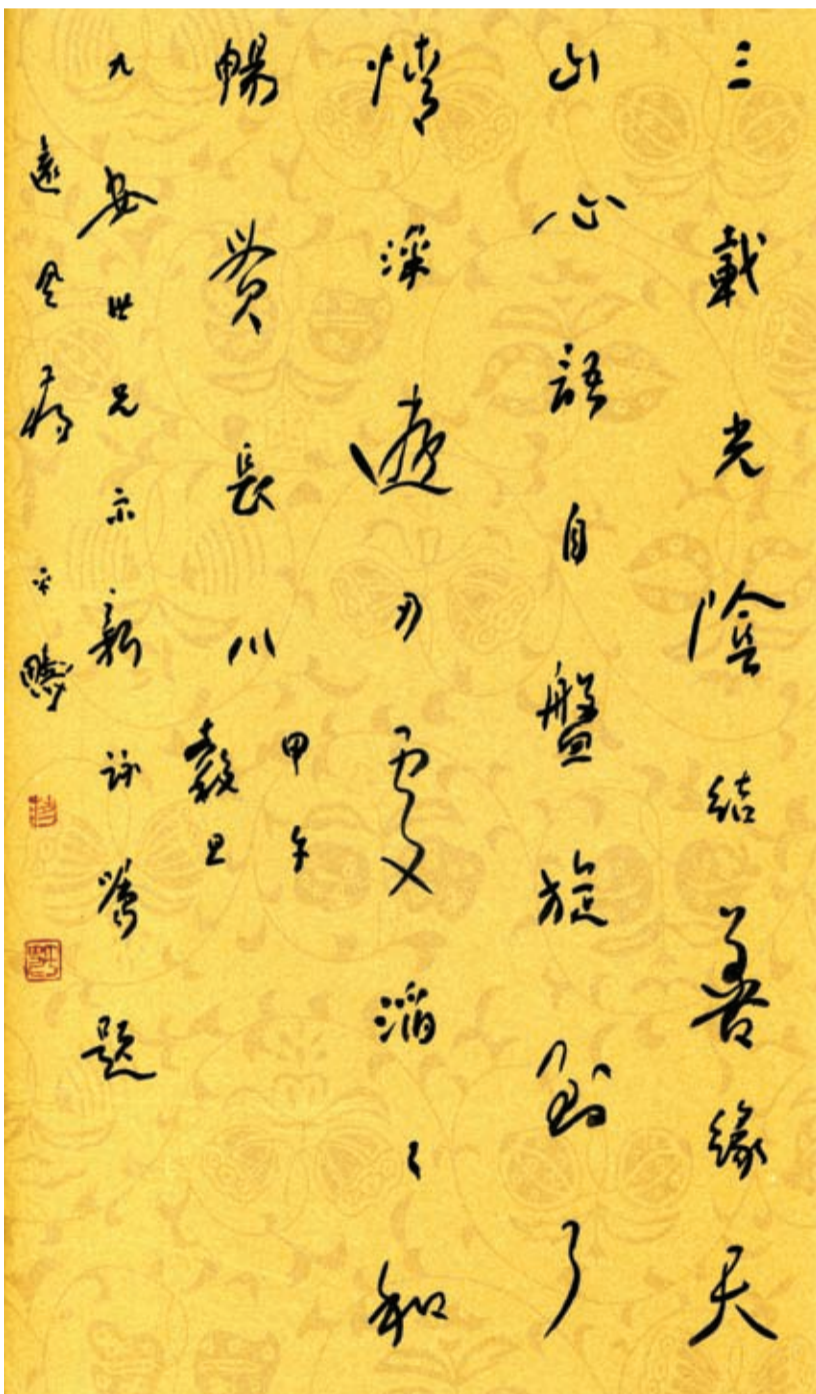 三載光陰結善緣天
山心語自盤旋了
情深遊刃處滔〻和
暢贊長川
甲午
穀旦
九安世兄示新詠賞題
遠